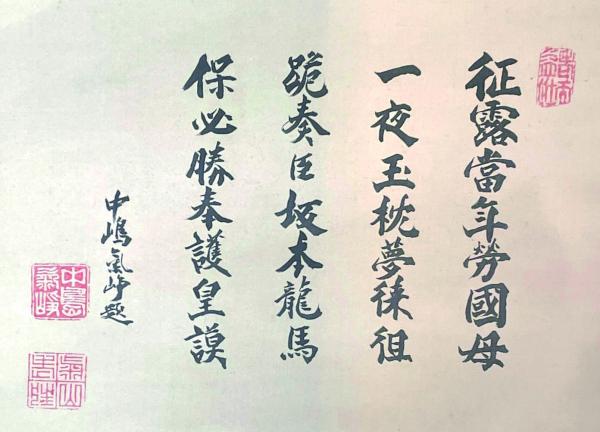 征露當年勞國母
一夜玉枕夢徠徂
跪奏臣坂本龍馬
保必勝奉護皇謨
中嶋氣崢題
中島氣崢